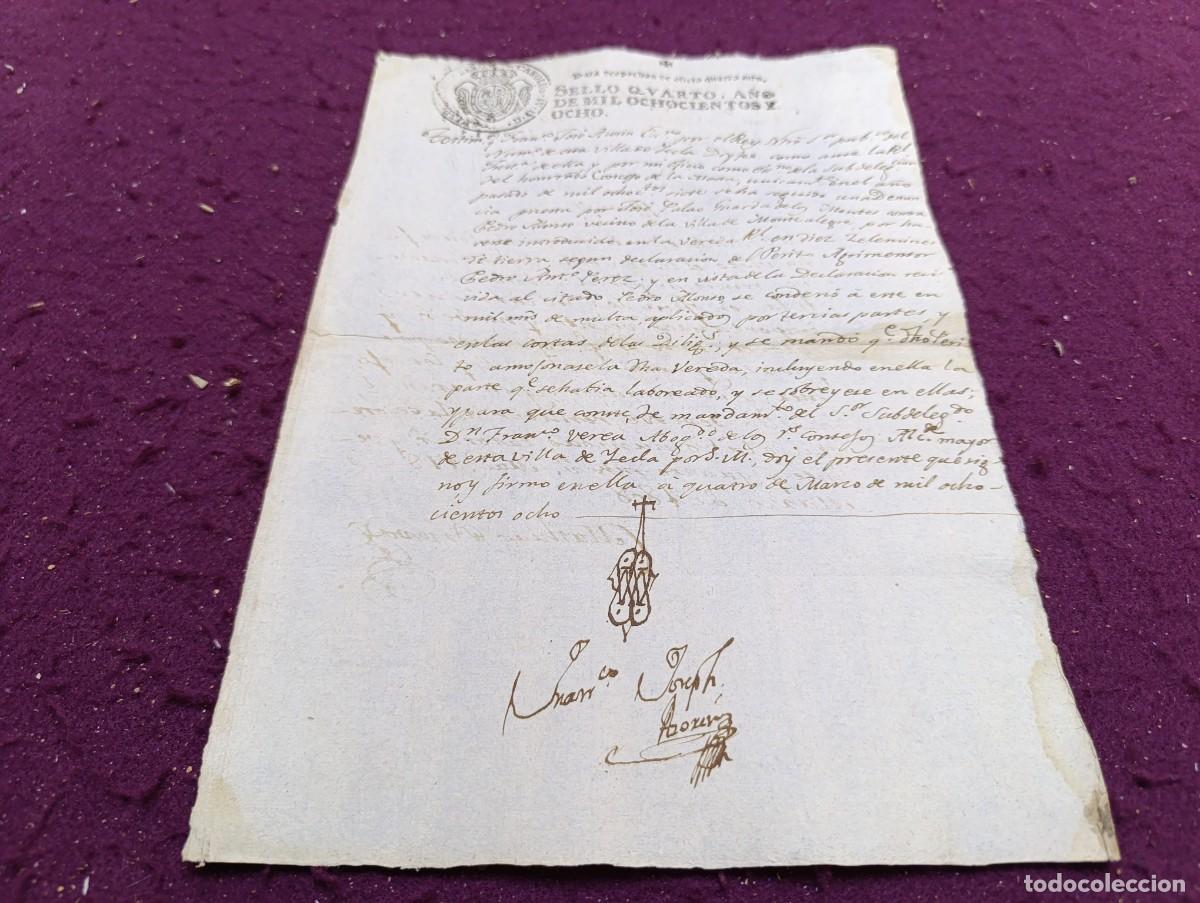 Para despachos de oficio quatro mrs.
SELLO QVARTO, AÑO
DE MIL OCHOCIENTOS Y
OCHO.
Fran.co José por el Rey Nro S.r pub.co
de esta Villa de Yecla Doy fee como ante la Rl
de ella y por mi oficio como de la Subdelegacion
del honrado Concejo de la Mesta, en el año
pasado de mil ochoc.tos siete se ha seguido una Denun
cia puesta por José Palao Guarda de los Montes contra
Pedro Alonso vecino de la Villa de Montealegre, por ha
verse introducido en la Vereda Rl. en diez Zelemines
de tierra segun declaracion del Perito Agrimensor
Pedro Ant.o Perez, y en vista de la Declaracion reci
vida al citado Pedro Alonso, se condenó á este en
mil mrs de multa aplicados por tercias partes, y
en las costas de las Dilig.s, y se mandó q.e dho Peri
to amojonase la dha Vereda, incluyendo en ella la
parte q.e se habia laboreado, y se sobreyese en ellas,
y para que conste, de mandam.to del S.or Subdeleg.do
D.n Fran.co Verea Abog.do de los R.s Consejos Alc.de mayor
de esta Villa de Yecla por S. M., doy el presente que sig
no y firmo en ella á quatro de Marzo de mil ocho-
cientos ocho
Fran.co Joseph
todocoleccion